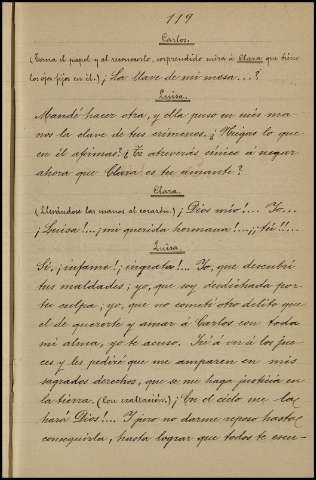 119
Carlos.
(Toma el papel y al reconocerlo, sorprendido mira á Clara que tiene
los ojos fijos en él.) ¡La llave de mi mesa...?
Luisa.
Mandé hacer otra, y ella puso en mis ma-
nos la clave de tus crímenes. ¿Niegas lo que
en él afirmas? ¿Te atreverás cínico á negar
ahora que Clara es tu amante?
Clara.
(Llevándose las manos al corazón.) ¡Dios mío!... Yo...
¡Luisa!... ¡mi querida hermana!... ¡¡tú!!...
Luisa.
Sí, ¡infame! ¡ingrata!... Yo, que descubrí
tus maldades; yo, que soy desdichada por
tu culpa; yo, que no cometí otro delito que
el de quererte y amar á Carlos con toda
mi alma, yo te acuso. Iré á ver á los jue-
ces y les pediré que me amparen en mis
sagrados derechos, que se me haga justicia en
la tierra. (Con exaltación.) ¡En el cielo me la
hará Dios!... Y juro no darme reposo hasta
conseguirla, hasta lograr que todos te escu-